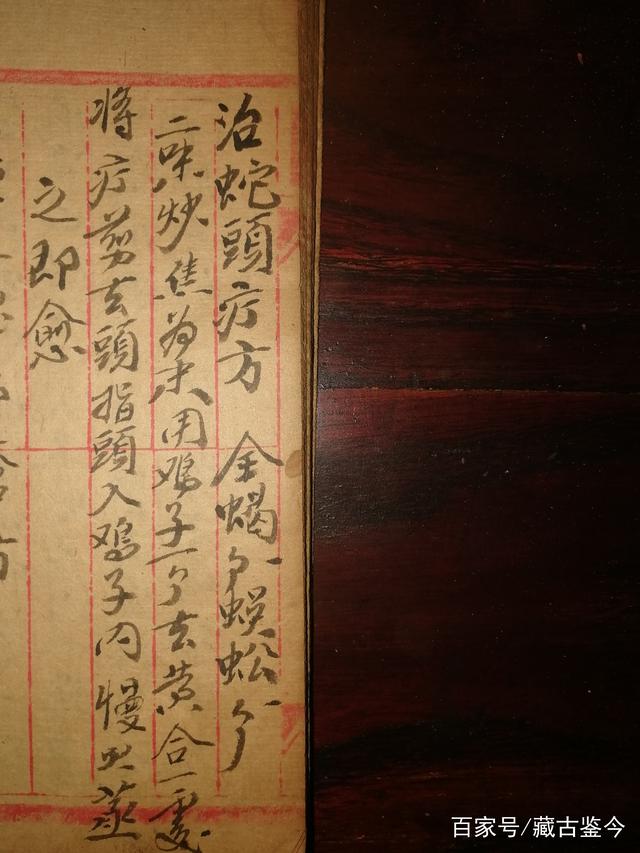 治蛇頭疔方 全蝎 蜈蚣
二味炒焦為末用鸡子一个去黄合一處
将疔剪去頭指頭入鸡子内慢火蒸
之即愈
方
百家号/藏古鉴今